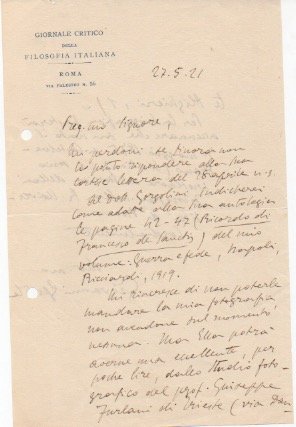 GIORNALE CRITICO
DELLA
FILOSOFIA ITALIANA
ROMA
VIA PALERMO N. 56
27.5.21
Preg.mo Signore
Mi perdoni se finora non
ho potuto rispondere alla Sua
cortese lettera del 28 aprile u.s.
al Dott. Gorgolini. Indicherei
come adatte alla Sua antologia
le pagine 42-47 (Ricordo di
Francesco de Sanctis) del mio
volume: Guerra e fede, Napoli,
Ricciardi, 1919.
Mi rincresce di non poterLe
mandare la mia fotografia,
non avendone sul momento
nessuna. Ma Ella potrà
averne una eccellente, per
poche lire, dallo Studio foto-
grafico del prof. Giuseppe
Furlani di Trieste (via